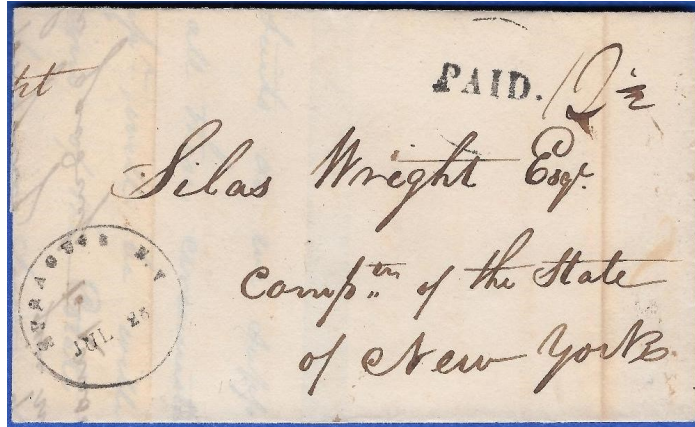 PAID. 12½
Silas Wright Esqr.
comptn of the State
of New York.
SYRACUSE N.Y
JUL 23